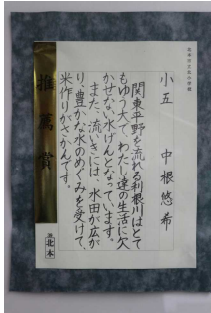 小五　中根悠希
関東平野を流れる利根川はとて
もゆう大で、わたし達の生活に欠
かせない水げんとなっています。
また、流いきには、水田が広が
り、豊かな水のめぐみを受けて、
米作りがさかんです。
推薦賞
北本